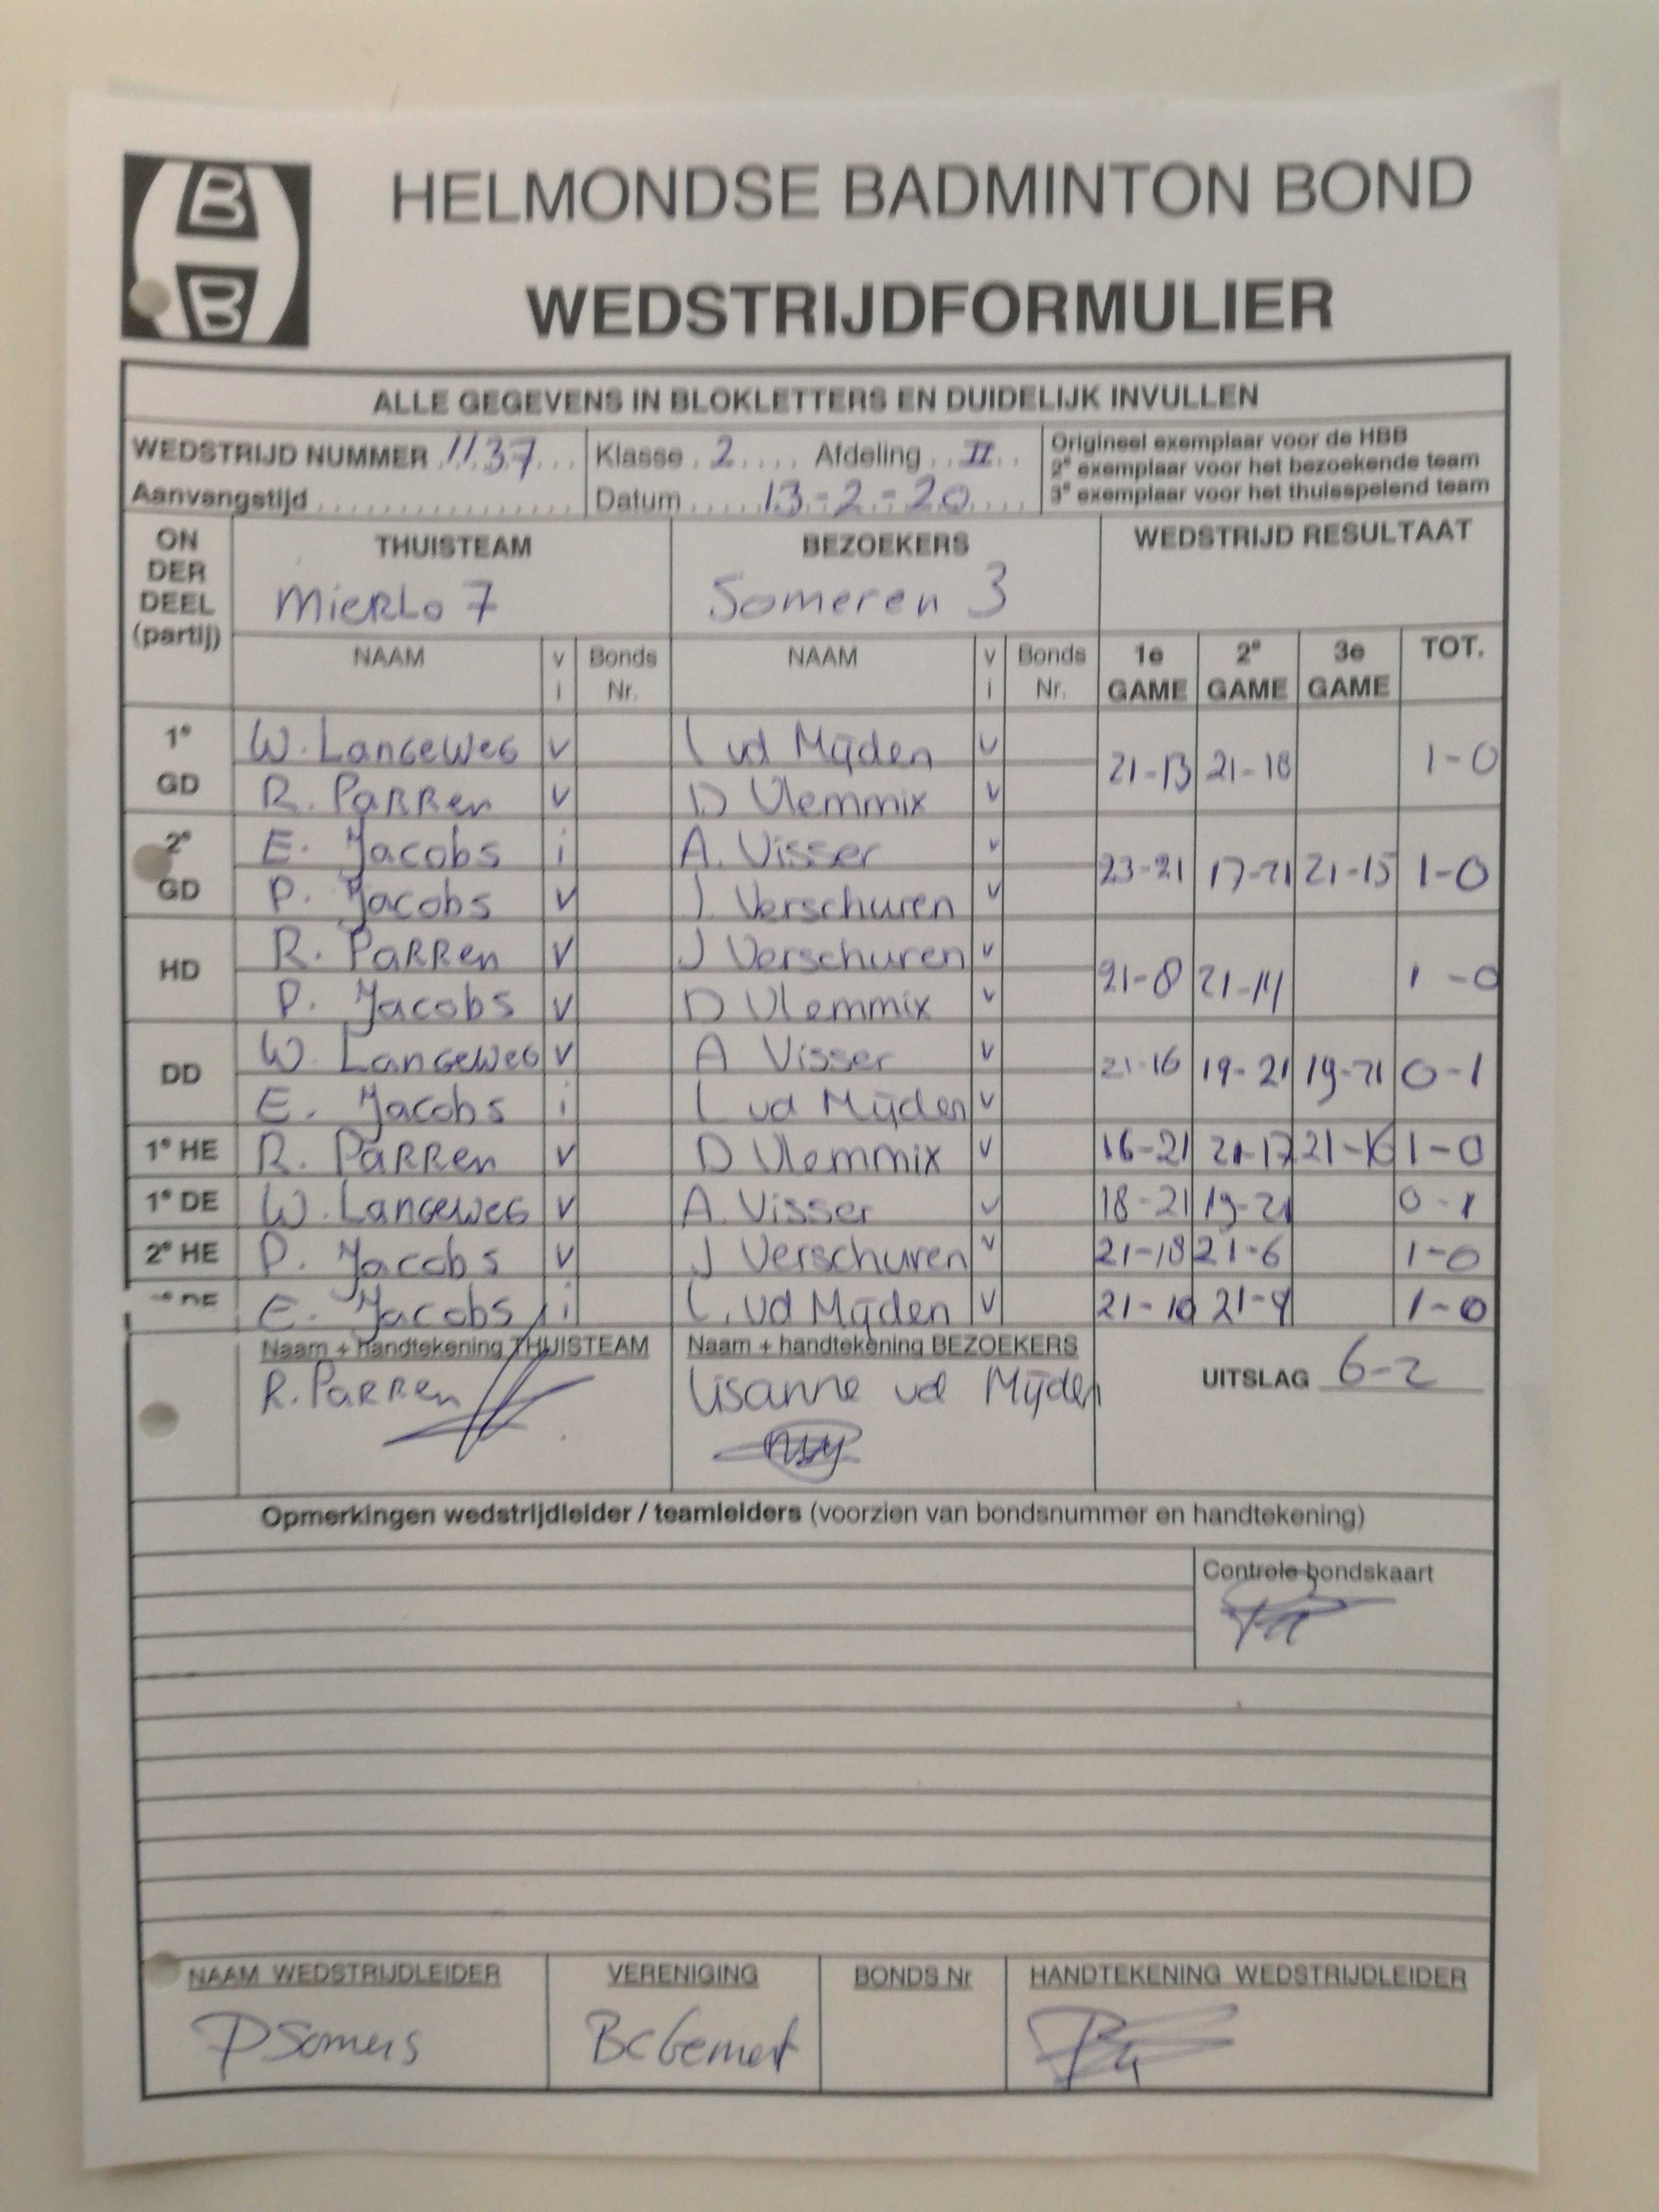 B
B
HELMONDSE BADMINTON BOND
WEDSTRIJDFORMULIER
ALLE GEGEVENS IN BLOKLETTERS EN DUIDELIJK INVULLEN
WEDSTRIJD NUMMER 1137 Klasse 2 Afdeling II
Aanvangstijd Datum 13-2-20
Origineel exemplaar voor de HBB
2e exemplaar voor het bezoekende team
3e exemplaar voor het thuisspelend team
ON DER DEEL (partij) THUISTEAM BEZOEKERS WEDSTRIJD RESULTAAT
MIERLO 7 Someren 3
NAAM v i Bonds Nr. NAAM v i Bonds Nr. 1e GAME 2e GAME 3e GAME TOT.
1e GD W. Langeweg v L vd Mijden v 21-13 21-18 1-0
R. Parren v D Vlemmix v
2e GD E. Jacobs i A. Visser v 23-21 17-21 21-15 1-0
P. Jacobs v J. Verschuren v
HD R. Parren v J Verschuren v 21-8 21-14 1-0
P. Jacobs v D Vlemmix v
DD W. Langeweg v A Visser v 21-16 19-21 19-21 0-1
E. Jacobs i L vd Mijden v
1e HE R. Parren v D Vlemmix v 16-21 21-17 21-16 1-0
1e DE W. Langeweg v A. Visser v 18-21 19-21 0-1
2e HE P. Jacobs v J Verschuren v 21-18 21-6 1-0
DE E. Jacobs i L. vd Mijden v 21-10 21-9 1-0
Naam + handtekening THUISTEAM Naam + handtekening BEZOEKERS UITSLAG 6-2
R. Parren Lisanne vd Mijden
Opmerkingen wedstrijdleider / teamleiders (voorzien van bondsnummer en handtekening)
Controle bondskaart
NAAM WEDSTRIJDLEIDER VERENIGING BONDS Nr HANDTEKENING WEDSTRIJDLEIDER
P Somers BC Gemert